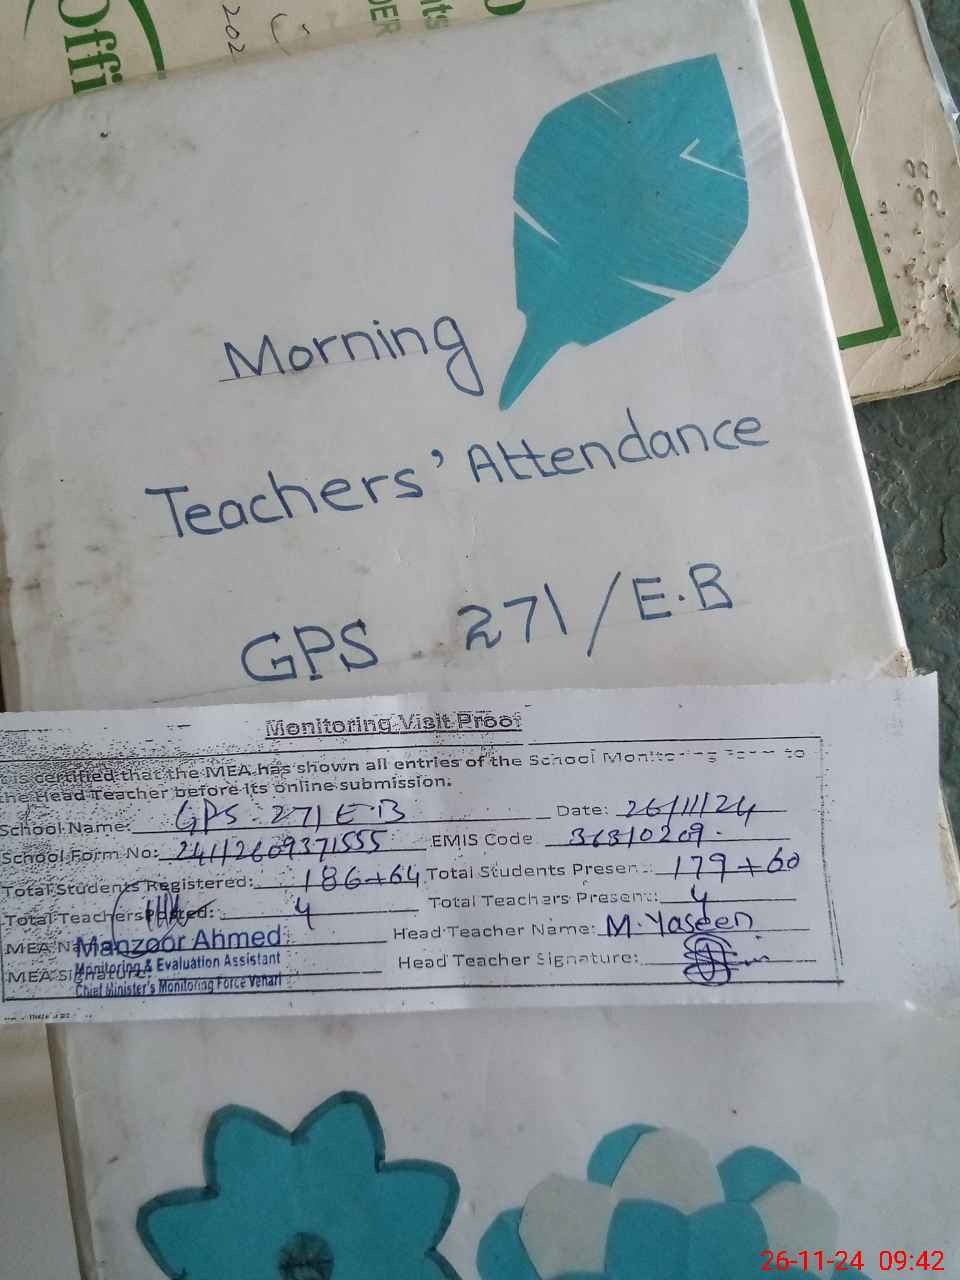 Offi
202
DER
its
Morning
Teachers' Attendance
GPS 271/E.B
Monitoring Visit Proof
is certified that the MEA has shown all entries of the School Monitoring Form to
the Head Teacher before its online submission.
School Name: GPS 271 E.B Date: 26/11/24
School Form No: 24112609371555 EMIS Code 36310209.
Total Students Registered: 186+64 Total Students Present: 179+60
Total Teachers Posted: 4 Total Teachers Present: 4
MEA Na Manzoor Ahmed Head Teacher Name: M. Yaseen
Monitoring & Evaluation Assistant
MEA Signature: Head Teacher Signature:
Chief Minister's Monitoring Force Vehari
26-11-24 09:42